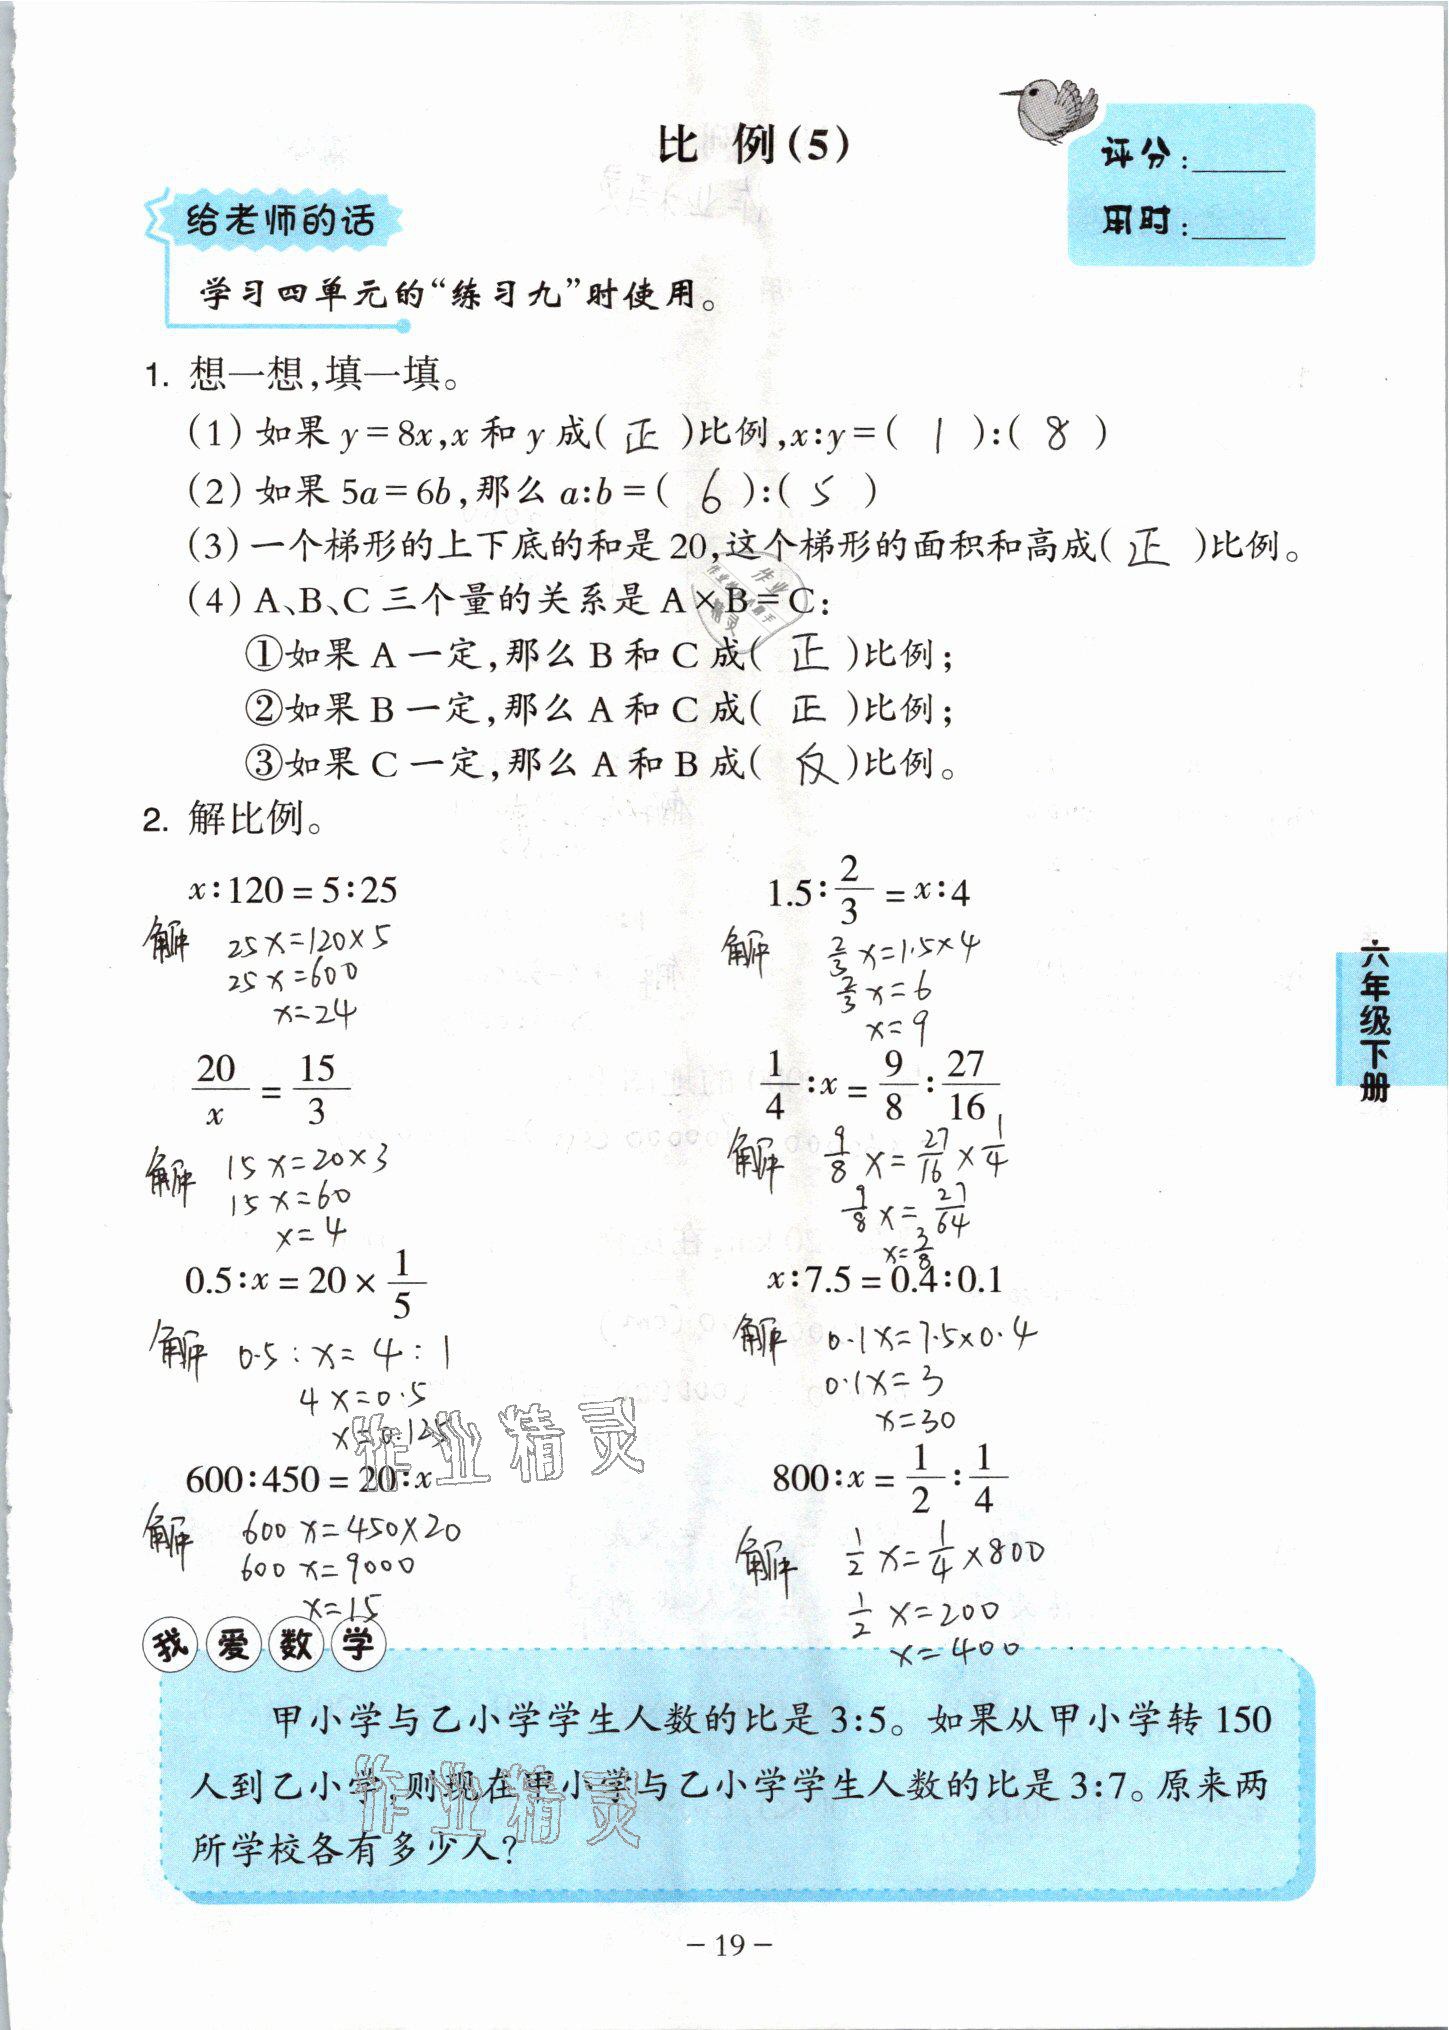 比 例(5)
评分:
用时:
给老师的话
学习四单元的“练习九”时使用。
1. 想一想,填一填。
(1)如果 y=8x,x 和 y 成( 正 )比例,x:y=( 1 ):( 8 )
(2)如果 5a=6b,那么 a:b=( 6 ):( 5 )
(3)一个梯形的上下底的和是 20,这个梯形的面积和高成( 正 )比例。
(4)A、B、C 三个量的关系是 A×B=C:
①如果 A 一定,那么 B 和 C 成( 正 )比例;
②如果 B 一定,那么 A 和 C 成( 正 )比例;
③如果 C 一定,那么 A 和 B 成( 反 )比例。
2. 解比例。
x:120=5:25
解 25x=120×5
25x=600
x=24
1.5:2/3=x:4
解 2/3 x=1.5×4
2/3 x=6
x=9
20/x=15/3
解 15x=20×3
15x=60
x=4
1/4:x=9/8:27/16
解 9/8 x=27/16×1/4
9/8 x=27/64
x=3/8
0.5:x=20×1/5
解 0.5:x=4:1
4x=0.5
x=0.125
x:7.5=0.4:0.1
解 0.1x=7.5×0.4
0.1x=3
x=30
600:450=20:x
解 600x=450×20
600x=9000
x=15
800:x=1/2:1/4
解 1/2 x=1/4×800
1/2 x=200
x=400
六年级下册
我爱数学
甲小学与乙小学学生人数的比是 3:5。如果从甲小学转 150
人到乙小学,则现在甲小学与乙小学学生人数的比是 3:7。原来两
所学校各有多少人?
作业精灵
作业精灵
-19-